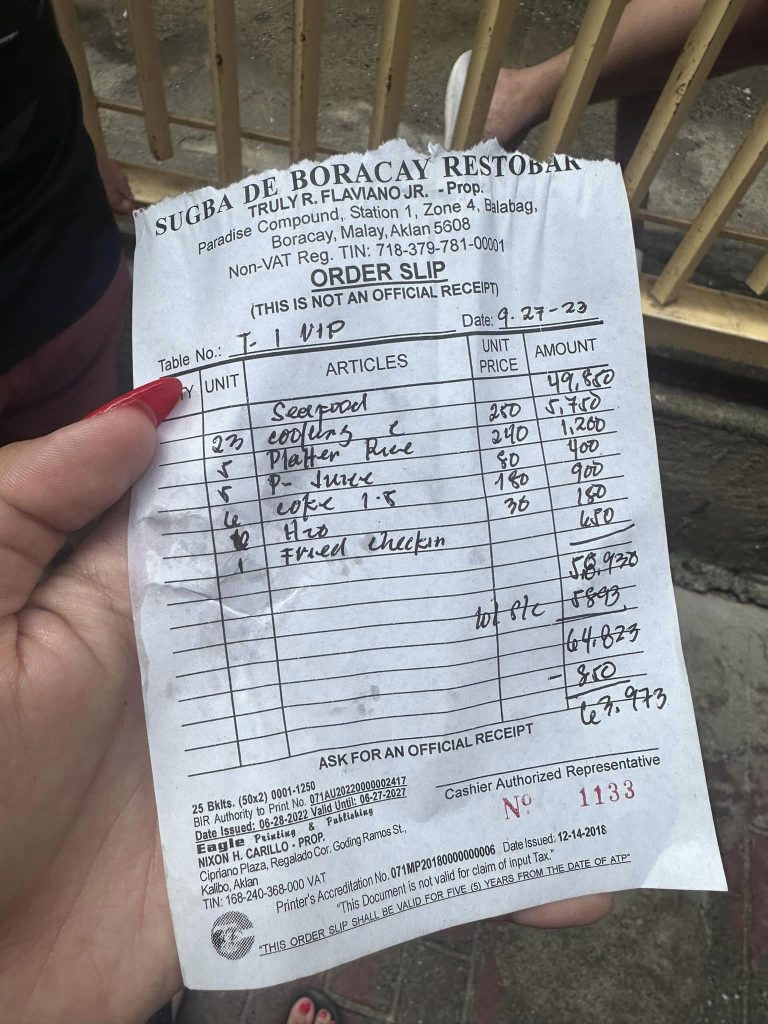 SUGBA DE BORACAY RESTOBAR
TRULY R. FLAVIANO JR. - Prop.
Paradise Compound, Station 1, Zone 4, Balabag,
Boracay, Malay, Aklan 5608
Non-VAT Reg. TIN: 718-379-781-00001
ORDER SLIP
(THIS IS NOT AN OFFICIAL RECEIPT)
Table No.: T- 1 VIP Date: 9-27-23
TY UNIT ARTICLES UNIT PRICE AMOUNT
Seafood 49,850
23 cooking c 250 5,750
5 Platter Rice 240 1,200
5 P- Juice 80 400
Coke 1.5 180 900
H20 30 180
1 Fried checkin 650
58,930
10% S/C 5893
64,823
- 850
63,973
ASK FOR AN OFFICIAL RECEIPT
25 Bklts. (50x2) 0001-1250
BIR Authority to Print No. 071AU20220000002417
Date Issued: 06-28-2022 Valid Until: 06-27-2027
Eagle Printing & Publishing
NIXON H. CARILLO - PROP.
Cipriano Plaza, Regalado Cor. Goding Ramos St.,
Kalibo, Aklan
TIN: 168-240-368-000 VAT
Cashier Authorized Representative
Nº 1133
Printer's Accreditation No. 071MP20180000000006 Date Issued: 12-14-2018
"This Document is not valid for claim of input Tax."
"THIS ORDER SLIP SHALL BE VALID FOR FIVE (5) YEARS FROM THE DATE OF ATP"